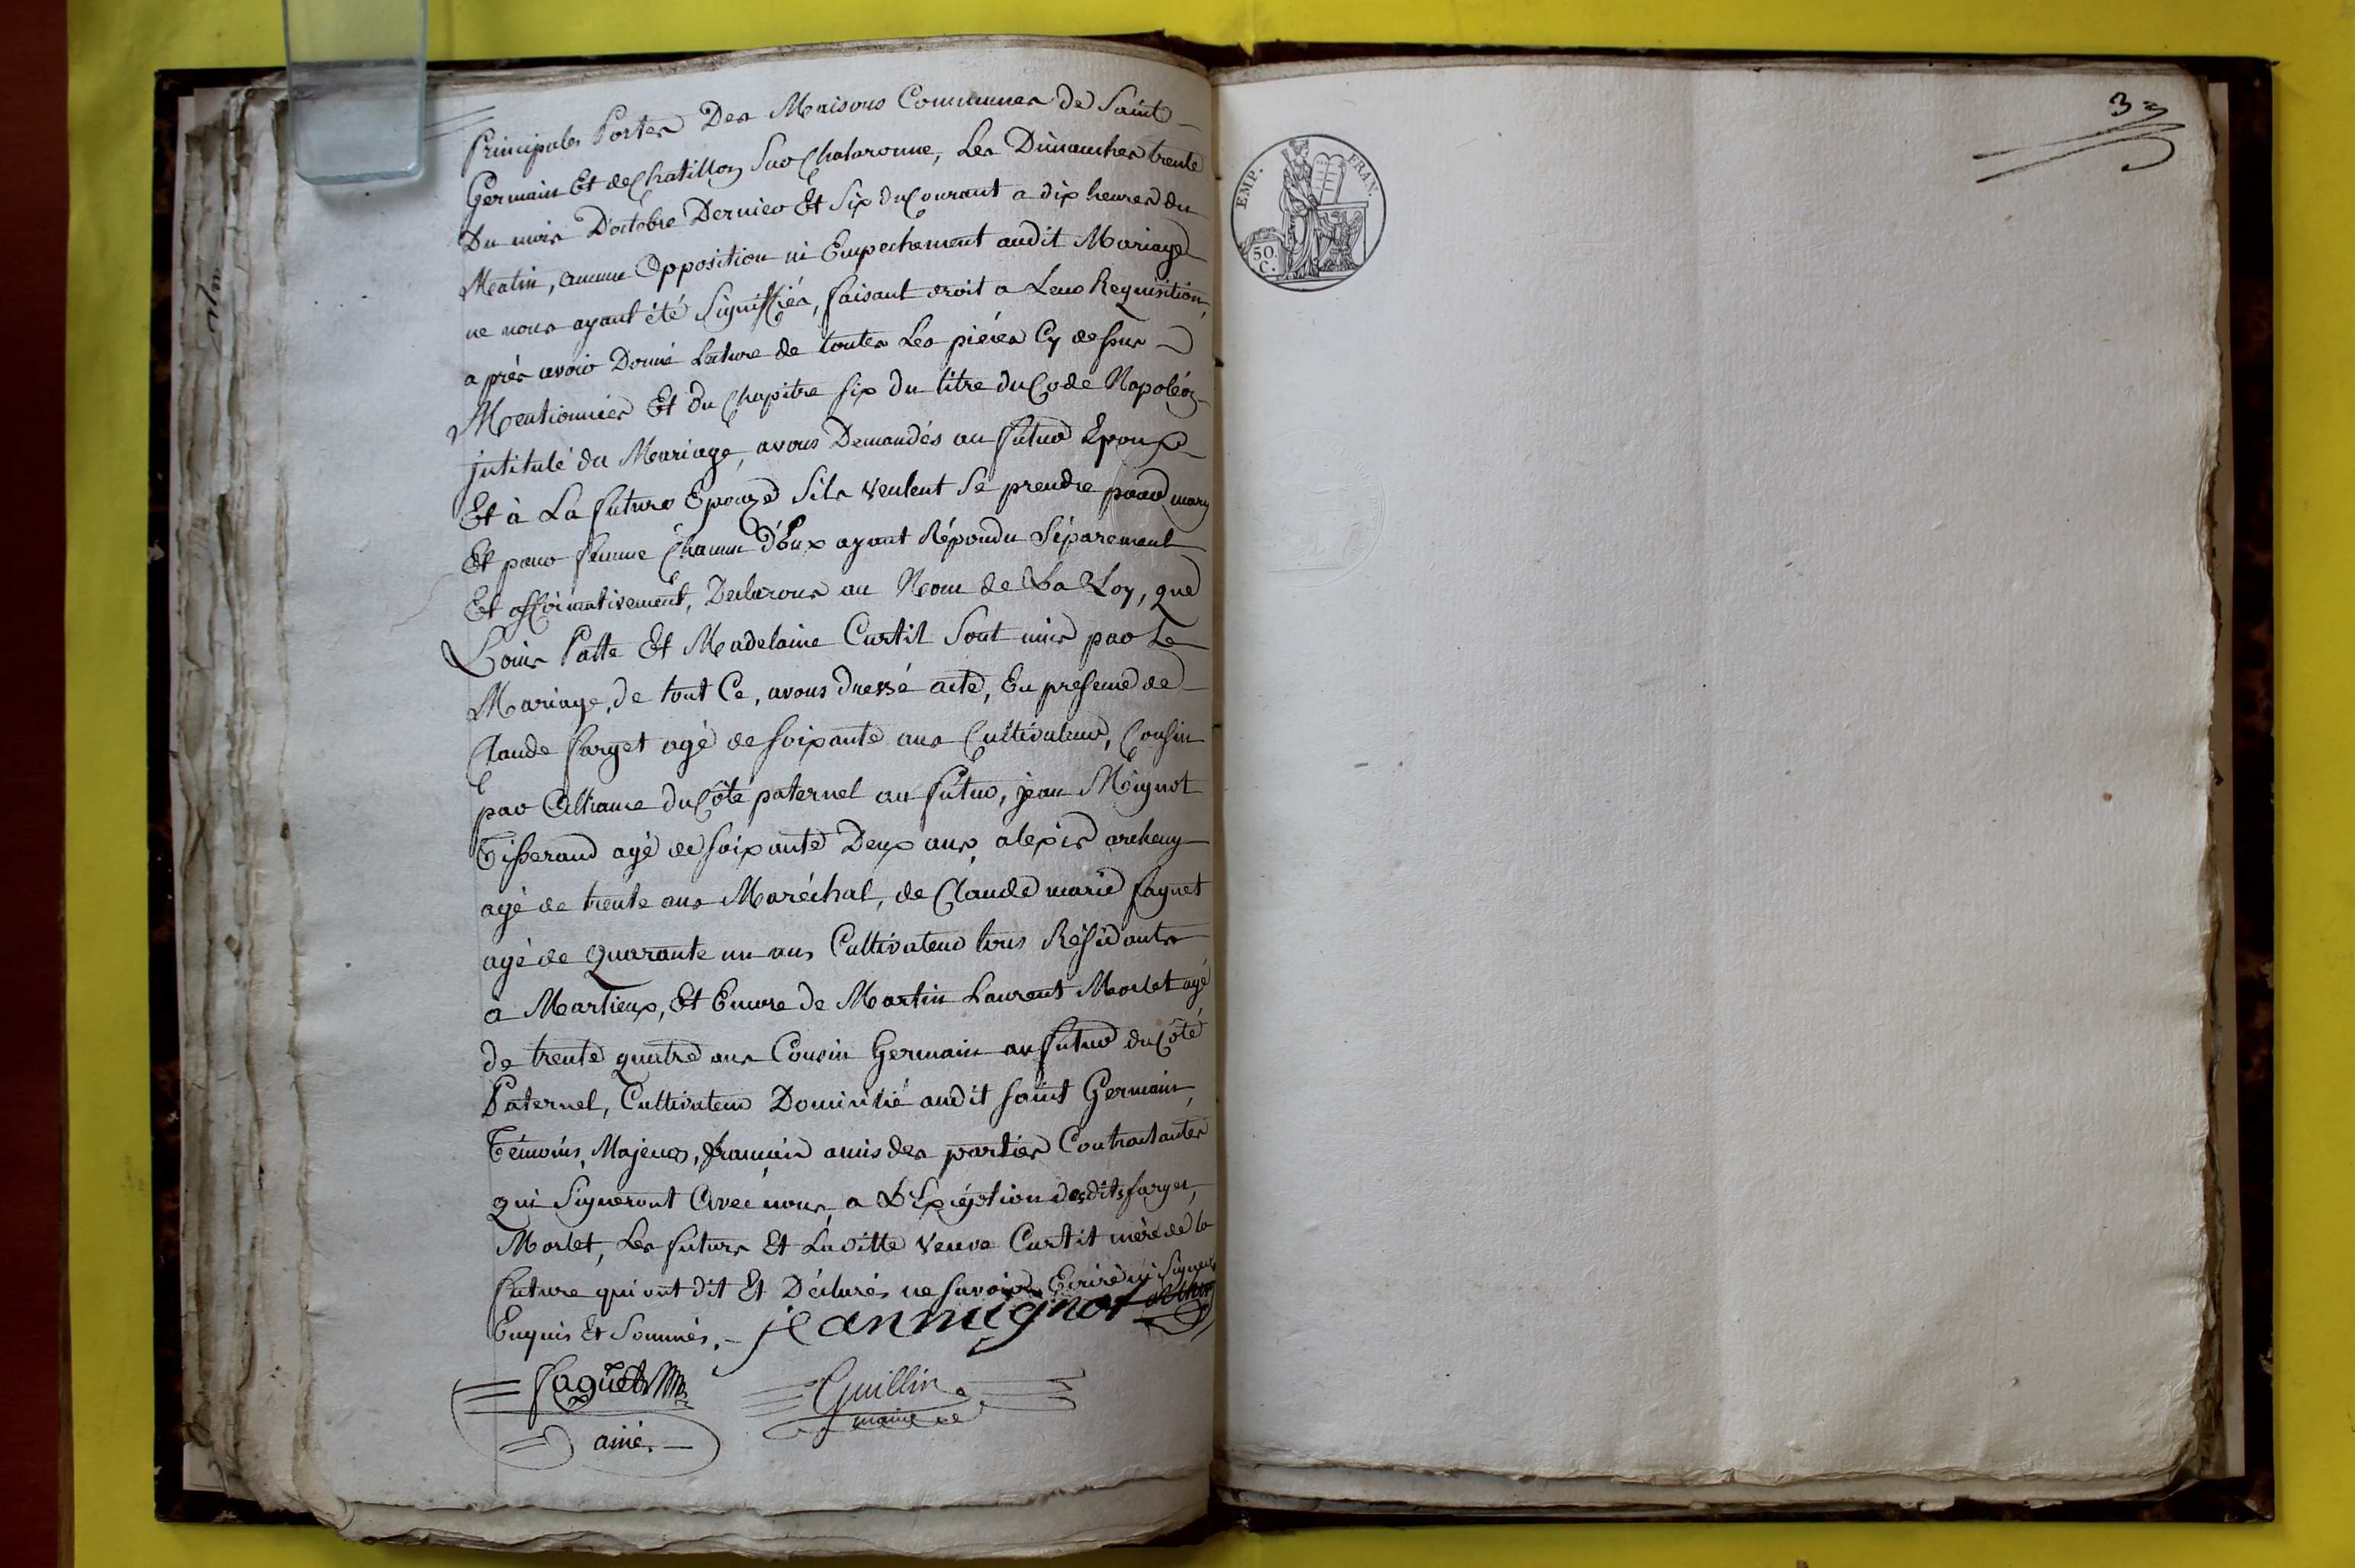 Principales Portes Des Maisons Communes de Saint
Germain Et de Chatillon Sur Chalaronne, Les Dimanches trente
Du mois D'octobre Dernier Et Six du Courant a dix heures du
Matin, aucune Opposition ni Empechement audit Mariage
ne nous ayant été Signiffiés, faisant droit a Leur Requisition,
après avoir Donné Lecture de toutes Les pièces Cy dessus
Mentionnées Et du Chapitre Six du titre du Code Napoléon
jntitulé du Mariage, avons Demandés au futur Epoux
Et à La future Epouze Sils veulent Se prendre pour mary
Et pour femme Chacun d'Eux ayant Répondu Séparement
Et affirmativement, Declarons au Nom de La Loy, que
Louis Patte Et Madelaine Curtil Sont unis par Le
Mariage, de tout Ce, avons dressé acte, En presence de
Claude farget agé de soixante ans Cultivateur, Cousin
par Alliance du Côté paternel au futur, jean Mignot
Tisserand agé de soixante Deux ans, alexis
agé de trente ans Maréchal, de Claude marie faguet
agé de Quarante un ans Cultivateur tous Résidants
a Marlieux, Et Encore de Martin Laurent Morlet agé
de trente quatre ans Cousin Germain au futur du Côté
Paternel, Cultivateur Domicilié audit Saint Germain,
Témoins, Majeurs, français amis des parties Contractantes
qui Signeront Avec nous, a L'Exeption desdits farget,
Morlet, Les futurs Et Laditte Veuve Curtit mère de la
future qui ont dit Et Déclarés ne Savoir Ecrire ni Signer
Enquis Et Sommés. - jean mignot
faguet
ainé. Guillin
maire
3
EMP. FRAN.
50.
C.